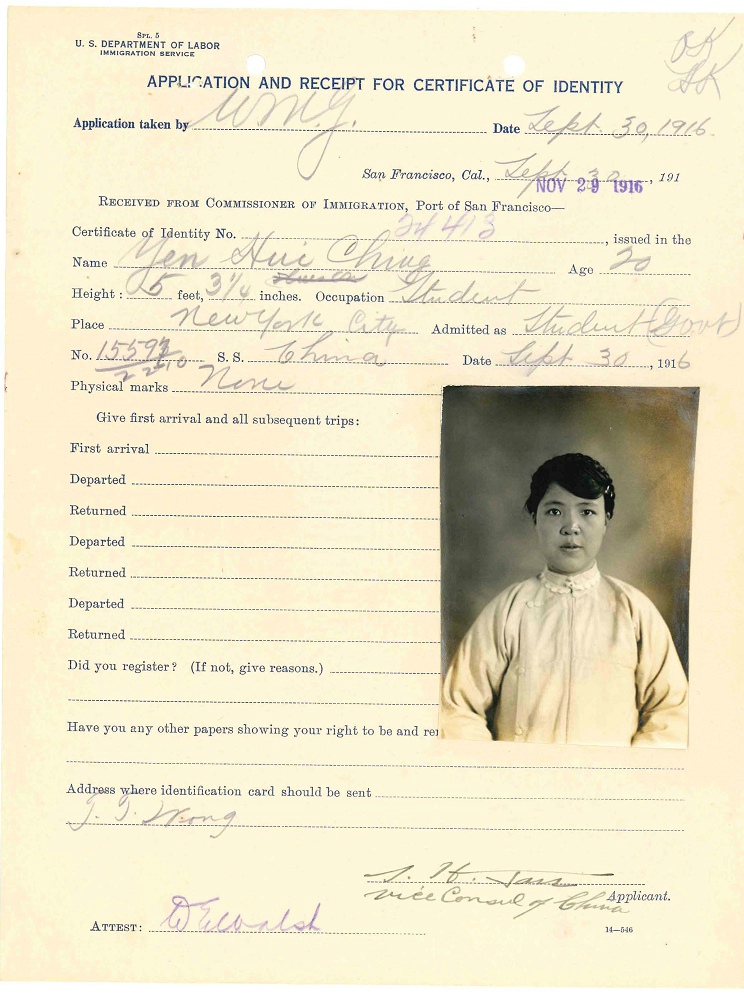 Spl. 5
U. S. DEPARTMENT OF LABOR
IMMIGRATION SERVICE
OK
APPLICATION AND RECEIPT FOR CERTIFICATE OF IDENTITY
Application taken by Date Sept 30, 1916.
San Francisco, Cal., Sept 30, 191
NOV 29 1916
RECEIVED FROM COMMISSIONER OF IMMIGRATION, Port of San Francisco—
Certificate of Identity No. 24413, issued in the
Name Yen Hui Ching Age 20
Height: 5 feet, 3 1/4 inches. Occupation Student
Place New York City Admitted as Student (Govt)
No. 15592 S. S. China Date Sept 30, 1916
Physical marks None
Give first arrival and all subsequent trips:
First arrival
Departed
Returned
Departed
Returned
Departed
Returned
Did you register? (If not, give reasons.)
Have you any other papers showing your right to be and
Address where identification card should be sent
T. T. Wong
Applicant.
Vice Consul of China
ATTEST: D E Walsh
14—546